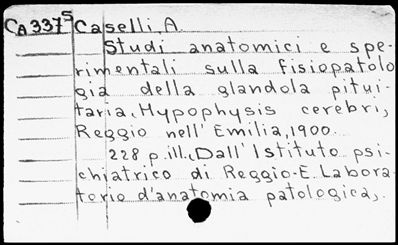 CA337S Caselli, A.
Studi anatomici e spe-
rimentali sulla fisiopatolo
gia della glandola pitui-
taria, Hypophysis cerebri,
Reggio nell' Emilia, 1900.
228 p. ill., Dall' Istituto psi-
chiatrico di Reggio-E. Labora-
torio d'anatomia patologica,.